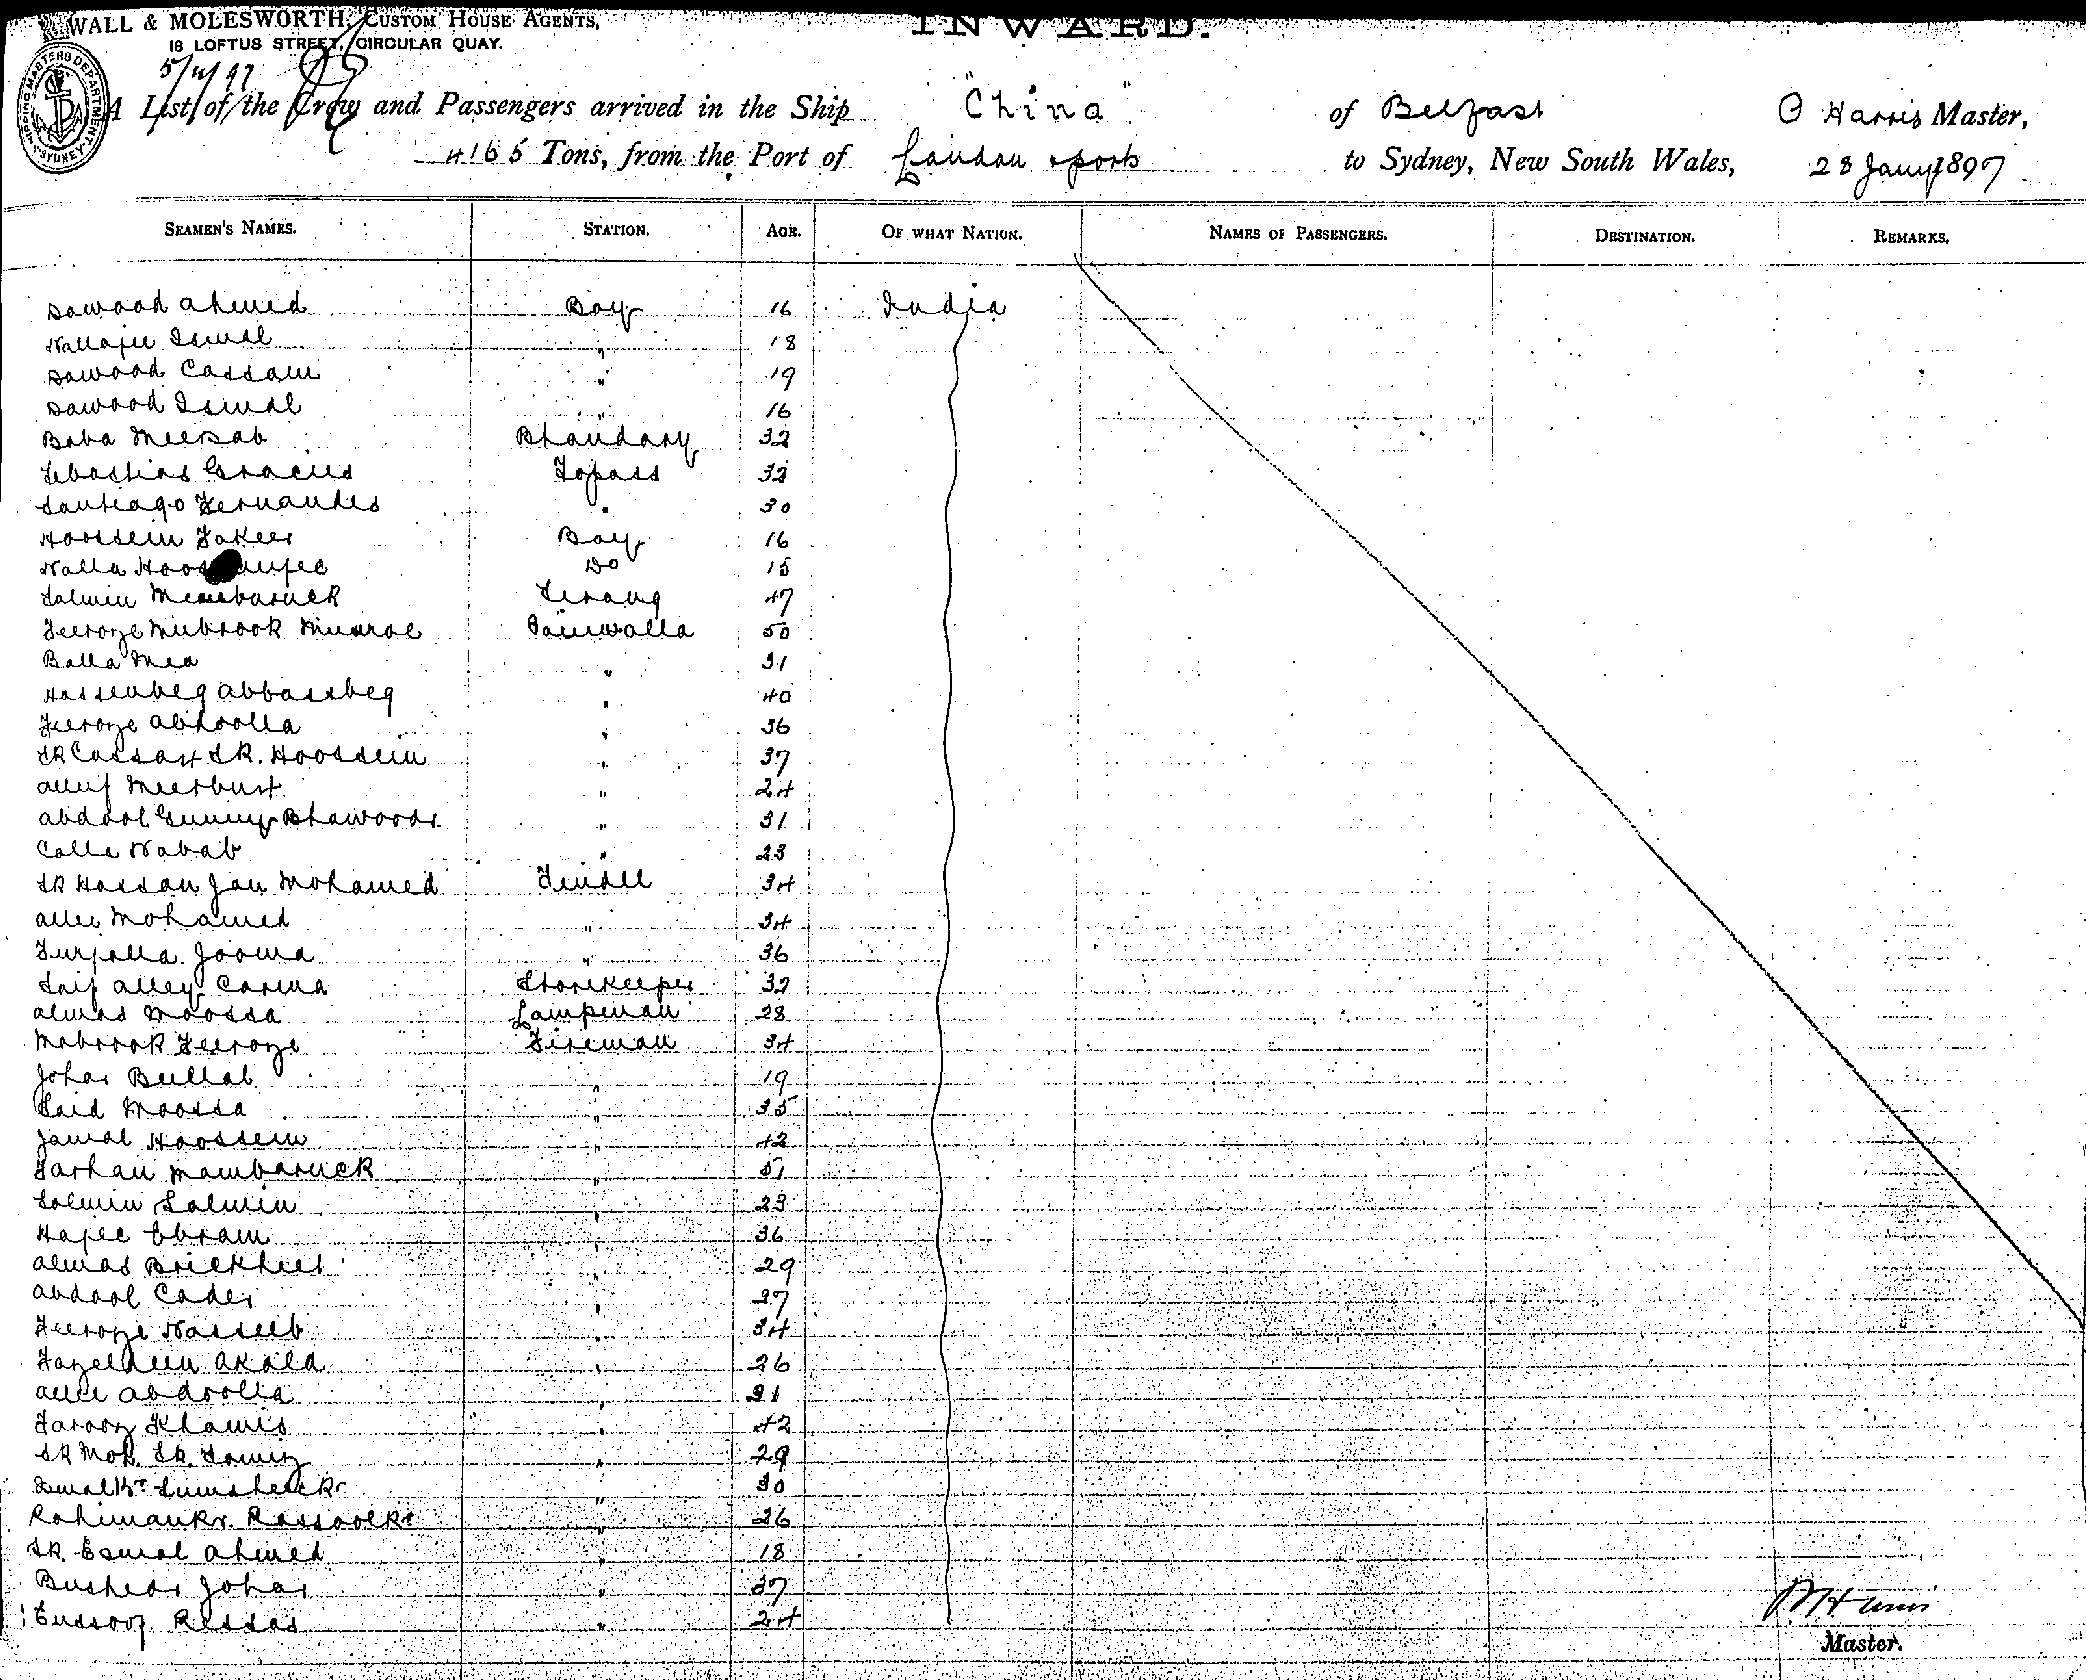 WALL & MOLESWORTH, CUSTOM HOUSE AGENTS,
18 LOFTUS STREET, CIRCULAR QUAY.
INWARD.
SHIPPING MASTERS DEPARTMENT SYDNEY
A List of the Crew and Passengers arrived in the Ship "China" of Belfast Harris Master,
4165 Tons, from the Port of London & ports to Sydney, New South Wales, 28 Jany 1897
SEAMEN'S NAMES. STATION. AGE. OF WHAT NATION. NAMES OF PASSENGERS. DESTINATION. REMARKS.
Dawood Ahmed Boy 16 India
Ismal " 18
Dawood Cassam " 19
Dawood Ismal " 16
Baba Meersab Bhandary 32
Sebastias Gracies Topass 32
Santiago Fernandes " 30
Hoossein Fakeer Boy 16
Nalla Do 15
Salmin Mambaruck Serang 47
Feeroze Mubrook Munroe Painwalla 50
Balla Mea " 31
Hassenbeg Abbassbeg " 40
Feeroze Abdoolla " 36
SK Cassam SK. Hoossein " 37
" 24
Abdool Gunny " 31
Calla Nabab " 23
SK Hassan Jan Mohamed Tindle 34
Allee Mohamed " 34
Furjalla Jooma " 36
Saif Alley Carma Storekeeper 32
Almas Moossa Lampman 28
Mabrook Feeroze Fireman 34
Johar Bullal " 19
Said Moossa " 35
Jamal Hoossein " 42
Farhan Mambaruck " 51
Salmin Salmin " 23
Hajee Ebram " 36
Almas " 29
Abdool Cader " 27
Feeroze Nasseeb " 34
Fazeldeen " 26
Allee Abdoolla " 31
Farooz Khamis " 42
SK Moh. SK. " 29
" 30
Rahimankr. Rassoolkr " 26
SK. Esmal Ahmed " 18
Bushear Johar " 37
Eussoof " 24
Harris
Master.